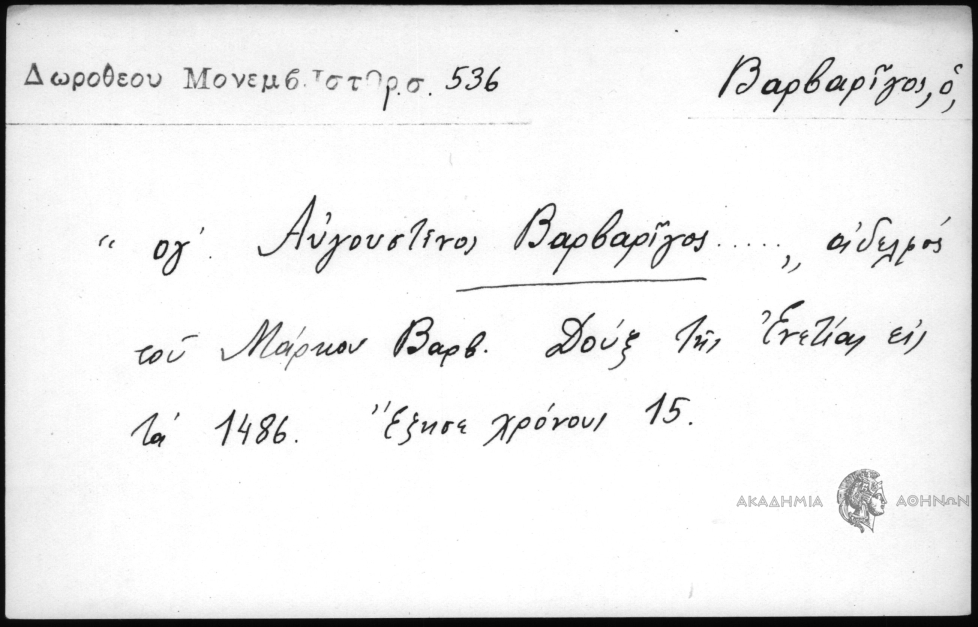 Δωροθεου Μονεμβ. Ιστορ. σ. 536
Βαρβαρῖγος, ὁ,
“ ογ΄. Αὐγουστίνος Βαρβαρῖγος ..... „ ἀδελφός
τοῦ Μάρκου Βαρβ. Δούξ τῆς Ἑνετίας εἰς
τά 1486. Ἔζησε χρόνους 15.
ΑΚΑΔΗΜΙΑ ΑΘΗΝΩΝ